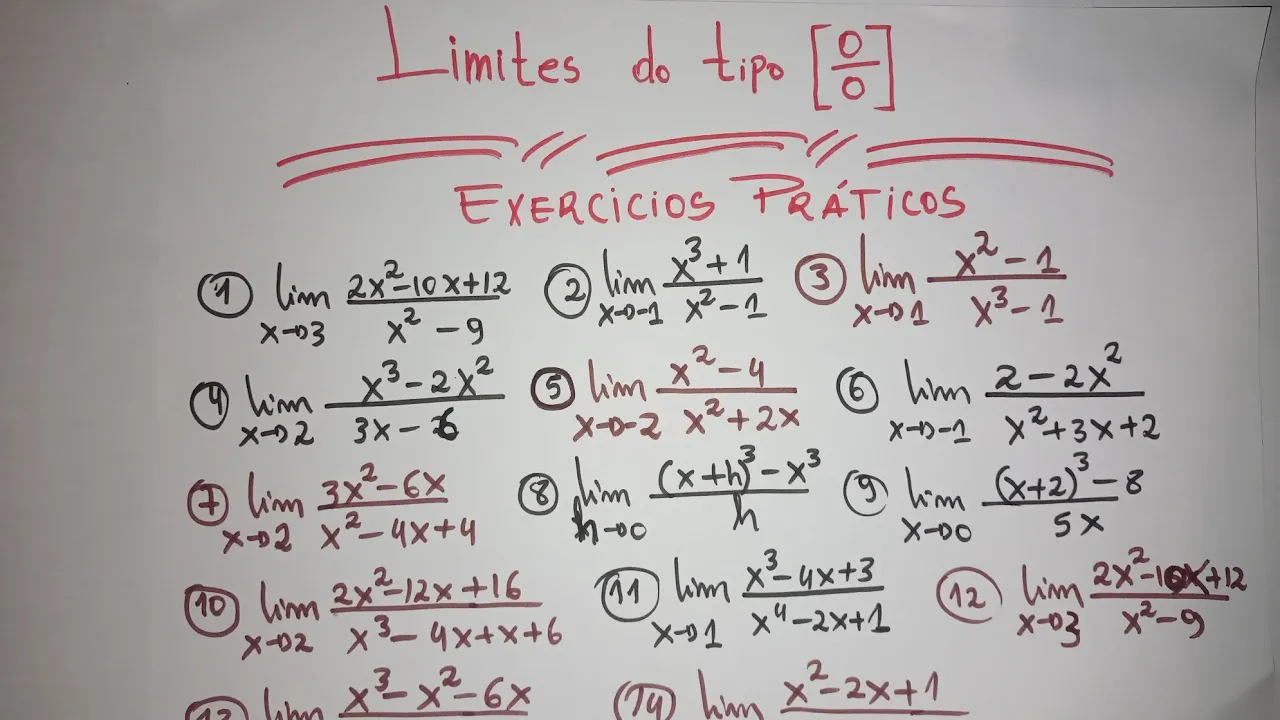 Limites do tipo [0/0]
EXERCICIOS PRÁTICOS
① lim x→3 (2x²-10x+12)/(x²-9) ② lim x→-1 (x³+1)/(x²-1) ③ lim x→1 (x²-1)/(x³-1)
④ lim x→2 (x³-2x²)/(3x-6) ⑤ lim x→-2 (x²-4)/(x²+2x) ⑥ lim x→-1 (2-2x²)/(x²+3x+2)
⑦ lim x→2 (3x²-6x)/(x²-4x+4) ⑧ lim h→0 ((x+h)³-x³)/h ⑨ lim x→0 ((x+2)³-8)/5x
⑩ lim x→2 (2x²-12x+16)/(x³-4x+x+6) ⑪ lim x→1 (x³-4x+3)/(x⁴-2x+1) ⑫ lim x→3 (2x²-10x+12)/(x²-9)
⑬ lim x³-x²-6x ⑭ lim x²-2x+1